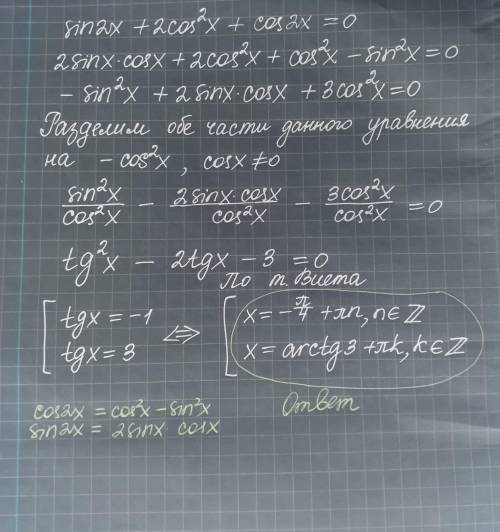 sin2x + 2cos²x + cos2x = 0
2sinx·cosx + 2cos²x + cos²x − sin²x = 0
− sin²x + 2sinx·cosx + 3cos²x = 0
Разделим обе части данного уравнения
на − cos²x, cosx ≠ 0
sin²x/cos²x − 2sinx·cosx/cos²x − 3cos²x/cos²x = 0
tg²x − 2tgx − 3 = 0
По т. Виета
[ tgx = −1 ⇔ [ x = −π/4 + πn, n∈ℤ
[ tgx = 3 [ x = arctg3 + πk, k∈ℤ
cos2x = cos²x − sin²x
sin2x = 2sinx·cosx
Ответ